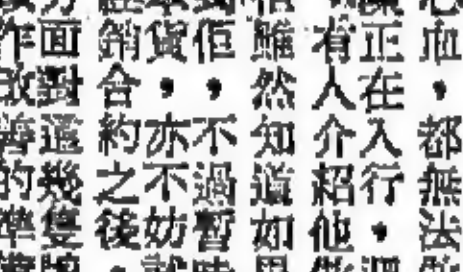 血，都無法
正在入行，
有人介紹他
雖然知道如果
佢，不過暫時
貨，亦不妨試
銷合約之後，
面對幾隻
作改善的準